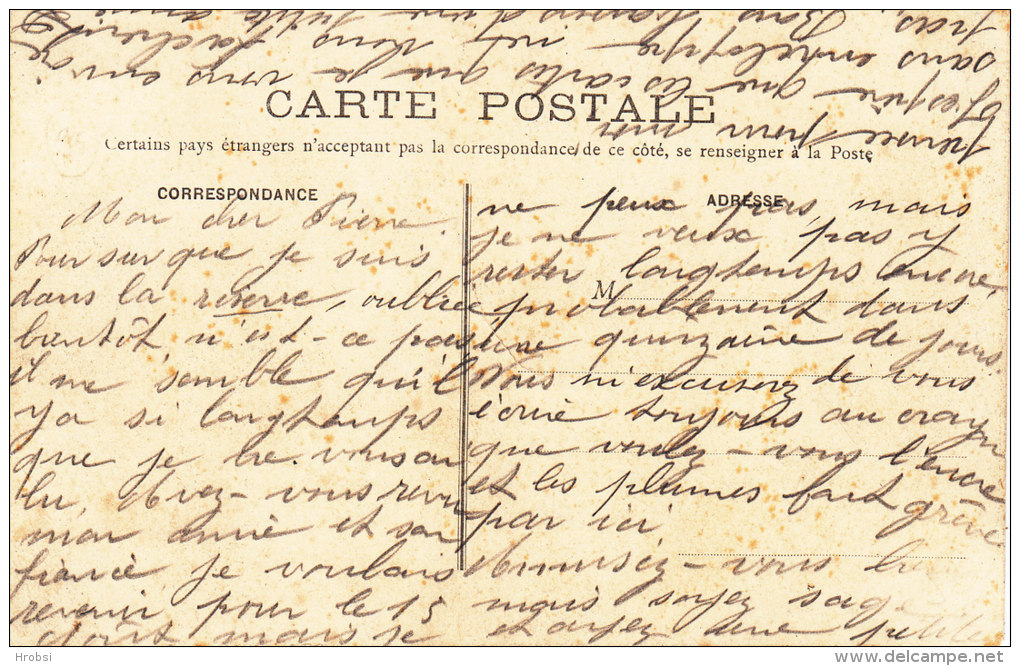 CARTE POSTALE
Certains pays étrangers n'acceptent pas la correspondance de ce côté, se renseigner à la Poste
CORRESPONDANCE
ADRESSE
M
Mon cher Pierre.
Pour sur que je suis
dans la réserve, oubliée
bientôt n'est-ce pas
il me semble qu'il
ya si longtemps
que je ne vous ai
lu, Avez-vous revu
mon amie et son
fiancé je voulais
revenir pour le 15
Août mais je
ne peux pas, mais
je ne veux pas y
rester longtemps encore,
probablement dans
une quinzaine de jours.
Vous m'excuserez de vous
écrire toujours au crayon
que voulez-vous l'encre
et les plumes font grève
par ici
Amusez-vous bien
mais soyez sage
et ayez une petite
pensée pour moi
J'espère que les cartes que je vous envoie
sans enveloppe ne vous fâcherons
pas